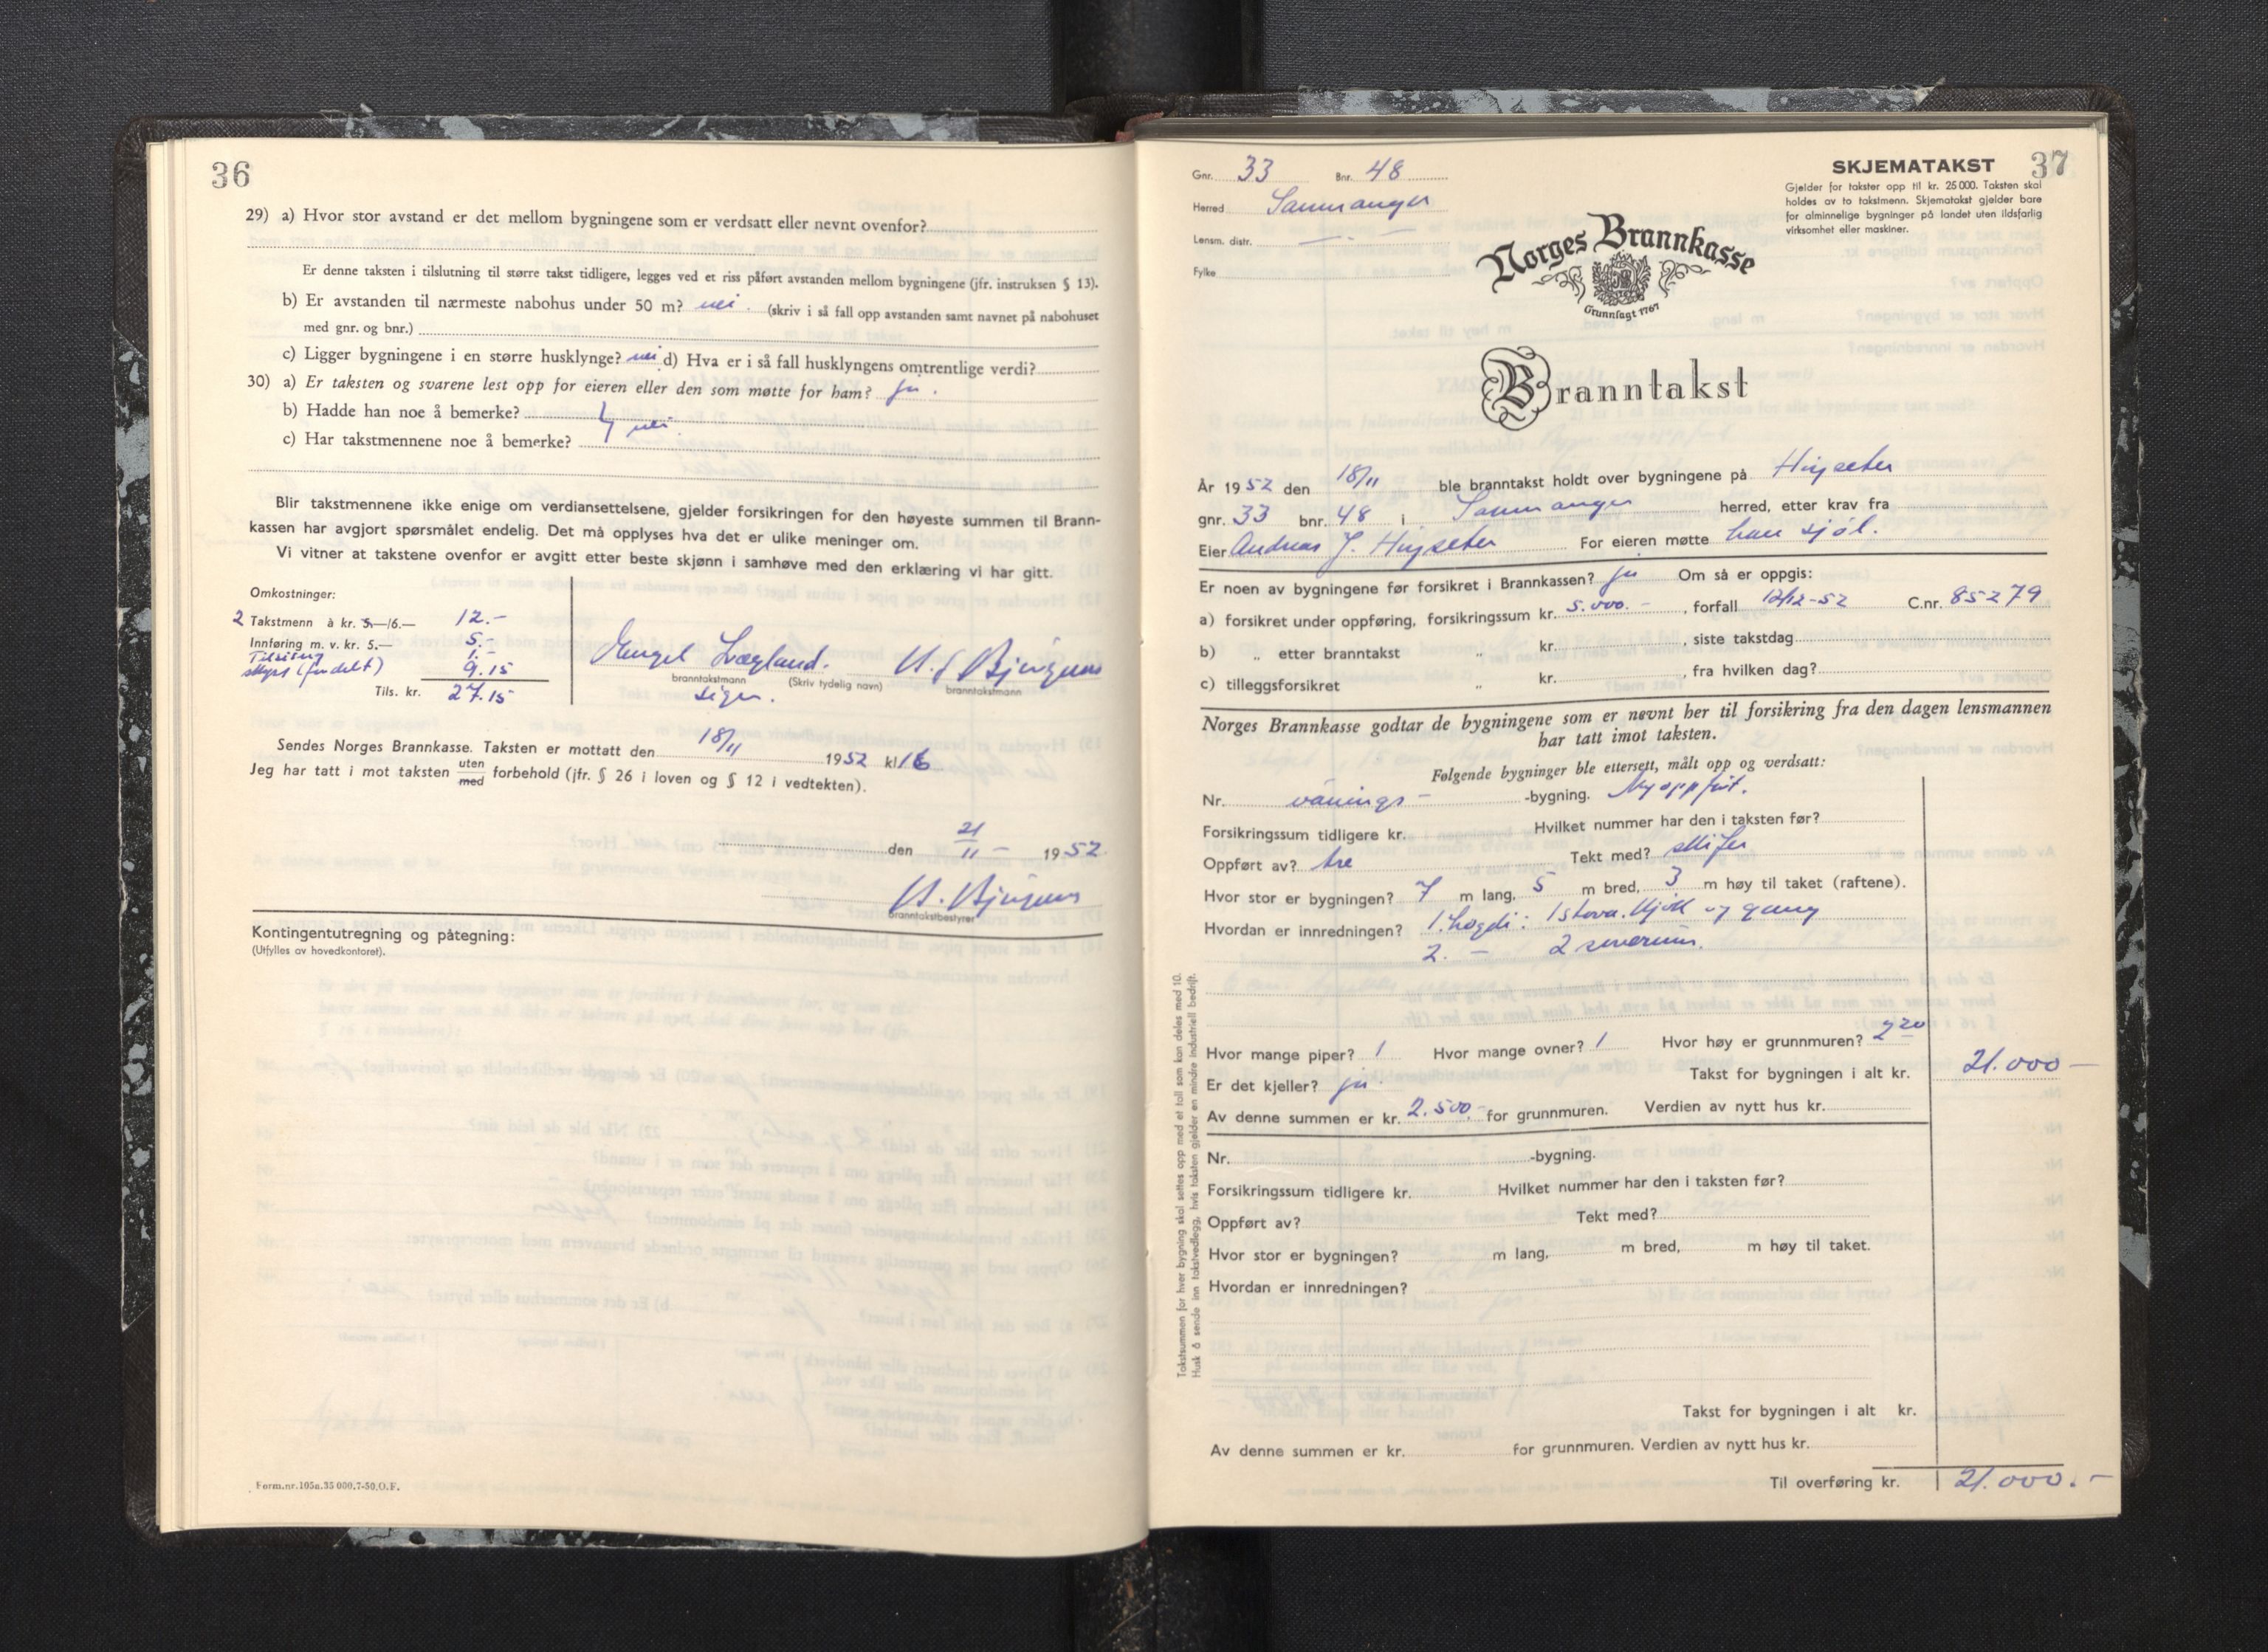 36
29) a) Hvor stor avstand er det mellom bygningene som er verdsatt eller nevnt ovenfor?
Er denne taksten i tilslutning til større takst tidligere, legges ved et riss påført avstanden mellom bygningene (jfr. instruksen § 13).
b) Er avstanden til nærmeste nabohus under 50 m? nei. (skriv i så fall opp avstanden samt navnet på nabohuset
med gnr. og bnr.)
c) Ligger bygningene i en større husklynge? nei d) Hva er i så fall husklyngens omtrentlige verdi?
30) a) Er taksten og svarene lest opp for eieren eller den som møtte for ham? ja.
b) Hadde han noe å bemerke?
c) Har takstmennene noe å bemerke? nei.
Blir takstmennene ikke enige om verdiansettelsene, gjelder forsikringen for den høyeste summen til Brann-
kassen har avgjort spørsmålet endelig. Det må opplyses hva det er ulike meninger om.
Vi vitner at takstene ovenfor er avgitt etter beste skjønn i samhøve med den erklæring vi har gitt.
Omkostninger:
2 Takstmenn à kr. 5.—/6.— 12.-
Innføring m. v. kr. 5.— 5.-
1.-
skyss (fordelt) 9.15
Tils. kr. 27.15
branntakstmann (Skriv tydelig navn) branntakstmann
Sendes Norges Brannkasse. Taksten er mottatt den 18/11 1952 kl 16
Jeg har tatt i mot taksten uten
med forbehold (jfr. § 26 i loven og § 12 i vedtekten).
den 21/11 - 1952
branntakstbestyrer
Kontingentutregning og påtegning:
(Utfylles av hovedkontoret).
Form.nr.105a.35 000.7-50.O.F.
37
Gnr. 33 Bnr. 48
Herred Samnanger
Lensm. distr. — " —
Fylke
SKJEMATAKST
Gjelder for takster opp til kr. 25 000. Taksten skal
holdes av to takstmenn. Skjematakst gjelder bare
for alminnelige bygninger på landet uten ildsfarlig
virksomhet eller maskiner.
Norges Brannkasse
Grunnlagt 1767
Branntakst
År 1952 den 18/11 ble branntakst holdt over bygningene på
gnr. 33 bnr. 48 i Samnanger herred, etter krav fra
Eier Andreas J. For eieren møtte han sjøl.
Er noen av bygningene før forsikret i Brannkassen? ja Om så er oppgis:
a) forsikret under oppføring, forsikringssum kr. 5.000.- , forfall 12/12-52 C.nr. 85279
b) „ etter branntakst „ kr. , siste takstdag
c) tilleggsforsikret „ kr. , fra hvilken dag?
Norges Brannkasse godtar de bygningene som er nevnt her til forsikring fra den dagen lensmannen
har tatt imot taksten.
Følgende bygninger ble ettersett, målt opp og verdsatt:
Nr. vånings- -bygning. Nyoppført.
Forsikringssum tidligere kr. Hvilket nummer har den i taksten før?
Oppført av? tre Tekt med? skifer
Hvor stor er bygningen? 7 m lang, 5 m bred, 3 m høy til taket (raftene).
Hvordan er innredningen? 1. høgdi: 1 stova. kjøk og gang
2. — 2 soverum.
Hvor mange piper? 1 Hvor mange ovner? 1 Hvor høy er grunnmuren? 2 20
Er det kjeller? ja. Takst for bygningen i alt kr. 21.000 -
Av denne summen er kr. 2.500.- for grunnmuren. Verdien av nytt hus kr.
Nr. -bygning.
Forsikringssum tidligere kr. Hvilket nummer har den i taksten før?
Oppført av? Tekt med?
Hvor stor er bygningen? m lang, m bred, m høy til taket.
Hvordan er innredningen?
Takst for bygningen i alt kr.
Av denne summen er kr. for grunnmuren. Verdien av nytt hus kr.
Til overføring kr. 21.000.-
Takstsummen for hver bygning skal settes opp med et tall som kan deles med 10.
Husk å sende inn takstvedlegg, hvis taksten gjelder en mindre industriell bedrift.